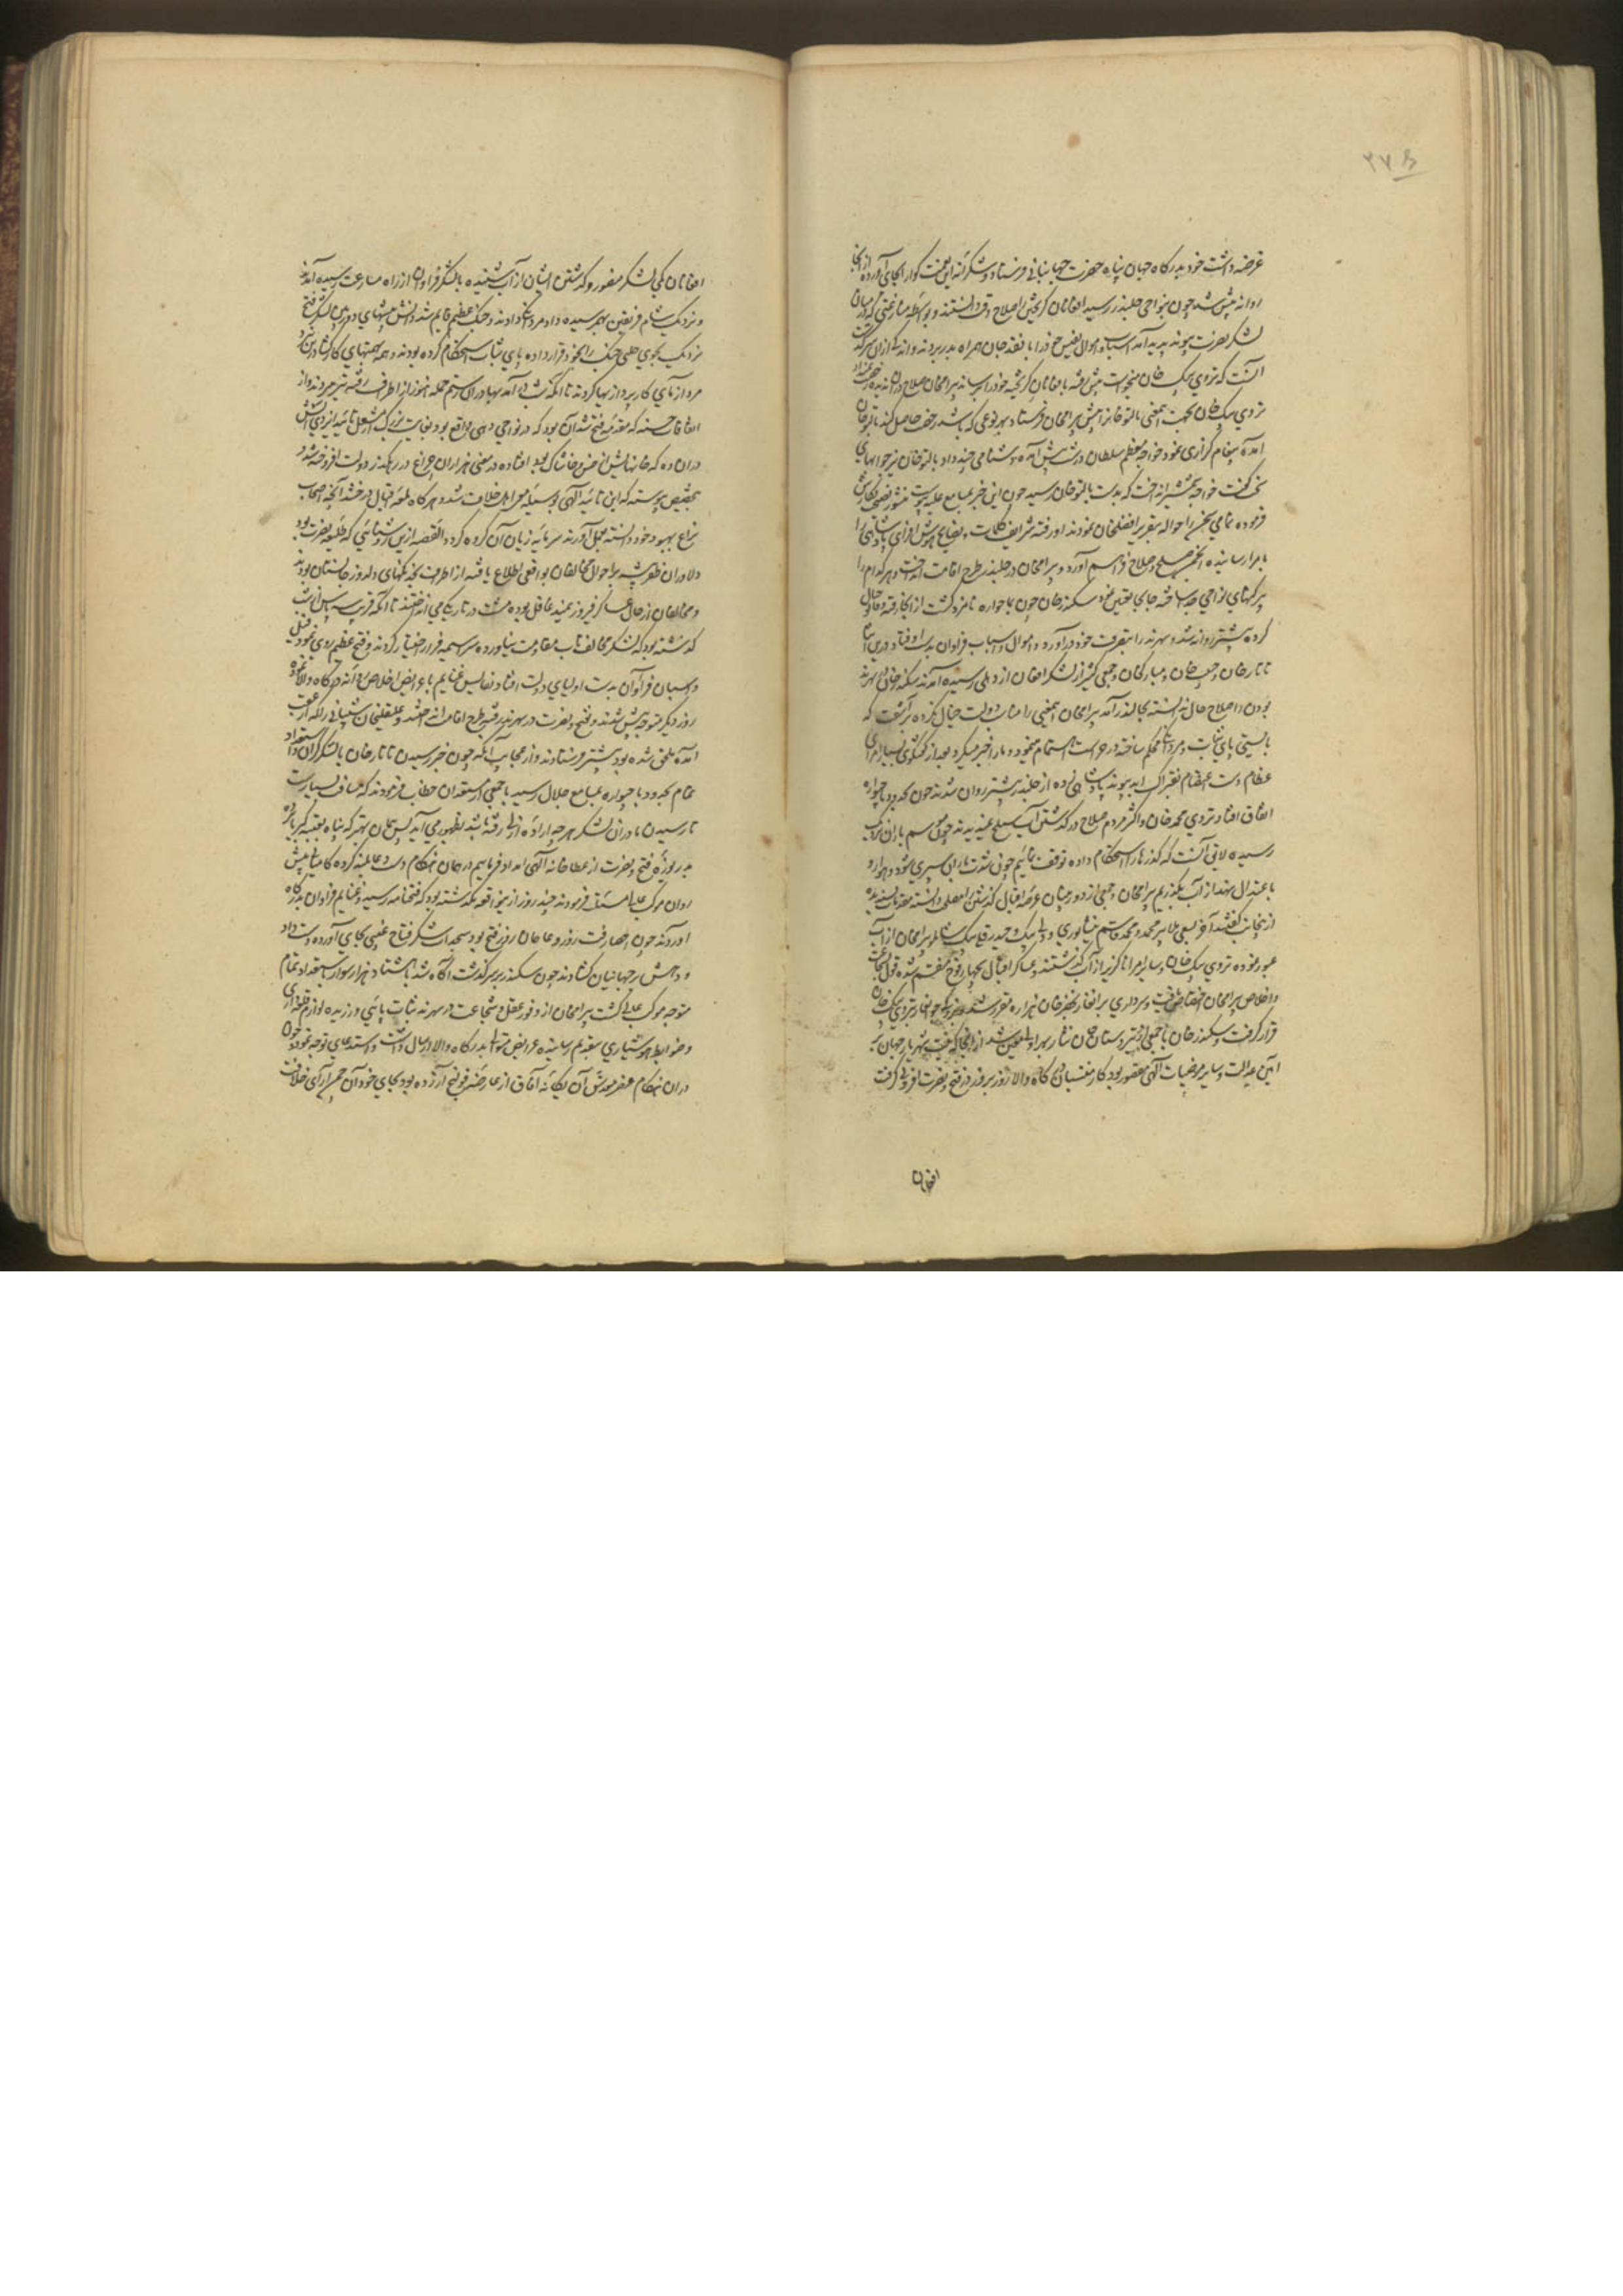 ۲۷۵
عرضه داشت خود بدرگاه جهان پناه حضرت جهانبانی فرستاد و شکرانه این نعمت کوارا بجای آورده از انجا
روانه پیش شد چون بنواحی جلندر رسید افغانان کریختن را صلاح وقت دانستند و بواسطه منازعتی که در میان
لشکر نصرت پیوند پدید آمد اسباب و اموال نفیس خود را با نقد جان همراه بدر بردند و اندکی ازان سرگذشت
آنست که تردی بیک خان میخواست پیش رفته بافغانان کریخته خود را رساند بیرامخان صلاح دران ندیده رخصت نمیداد
تردی بیک خان بجهت اینمعنی بالتو خانرا پیش بیرامخان فرستاد بهر نوعی که باشد رخصت حاصل کند بالتو خان
آمده پیغام گزاری نمود خواجه معظم سلطان درشت پیش آمده دشنامی چند داد بالتو خان نیز جوابهای
سخت گفت خواجه شمشیر انداخت که بدست بالتو خان رسید چون این خبر بمسامع علیه پیوست منشور نصیحت نگارش
فرموده تمامی سخن را حواله بتقریر افضلخان نمودند او رفته شرایف کلمات و نصایح هوش افزای پادشاهی را
بامرا رسانیده انجمن صلح و صلاح فراهم آورد و بیرامخان در جلندر طرح اقامت انداخت و هر کدام را
پرگنهای نواحی جدا ساخته جابجا تعین نمود سکندر خان چون بماچواره نامزد گشت از انجا رفته
کرده پیشتر روانه شد و سهرند را بتصرف خود درآورد و اموال و اسباب فراوان بدست او افتاد و درین اثنا
تاتار خان و حبیب خان و مبارکخان و جمعی کثیر از لشکر افغان از دهلی رسیده آمدند سکندر خان در سهرند
بودن را صلاح حال ندانسته بجلندر آمد بیرامخان اینمعنی را مناسب دولت خیال نکرده برآشفت که
بایستی پای ثبات و مردانگی محکم ساخته در حراست اهتمام مینمود و مارا خبر میکرد بعد از گفتگوی بسیار امرای
عظام دست اعتصام بفتراک ابد پیوند پادشاهی زده از جلندر پیشتر روان شدند چون بحدود ماچواره
اتفاق افتاد تردی محمد خان و اکثر مردم صلاح در گذشتن آب ستلج نمیدیدند چون موسم باران نزدیک
رسیده لایق آنست که گذرها را استحکام داده توقف نمائیم چون شدت بارانی سپری شود و هوا رو
باعتدال نهد از آب بگذریم بیرامخان و جمعی از دوربینان عرصه اقبال گذشتن را مصلحت دانسته مقدمات پسندیده
ازینجانب گفتند آخر بسعی ملا پیر محمد و محمد قاسم نیشاپوری و ولی بیک و حیدر قلی بیک شاملو بیرامخان از آب
عبور نموده تردی بیک خان و سایر امرا ناگزیر از آب گذشتند و عساکر اقبال بچهار فوج منقسم شده قول بشجاعت
و اخلاص بیرامخان اختصاص یافت و سرداری برانغار بخضر خان هزاره مقرر شد و جوانغار بتردی بیک خان
قرار گرفت و سکندر خان با جمعی از تیزدستان جان نثار بهراولی معین شد از انجا که نیت شهریار جهان بر
آیین عدالت و سایر مرضیات آلهی مقصور بود کار منتسبان درگاه والا روز بروز در فتح و نصرت افزونی گرفت
افغانان
افغانان کمی لشکر منصور و گذشتن ایشان از آب شنیده با لشکر فراوان از راه مسارعت رسیده آمدند
و نزدیک شام فریقین بهم رسیده داد مردانگی دادند و جنگ عظیم قایم شد دانش منشهای دوربین لشکر فتح
نزدیک بجوی جای جنگ را بخود قرار داده پای ثبات استحکام کرده بودند و همه بهمتهای کارگشا درین نبرد
مردآزمای کارپردازیها کردند تا آنکه شب درآمد بهادران رستم حمله هنوز از اطراف رفته تیر میزدند و از
اتفاقات حسنه که مقدمه فتح شد آن بود که در نواحی دهی واقع بود بغایت بزرگ از مشعل تائید ایزدی آتش
دران ده که خانهایش از خس و خاشاک بود افتاده در معنی هزاران چراغ در رهگذر دولت افروخته شد و
بتحقیق پیوسته که این تائید آلهی بوسیله هم از اهل خلاف شد و هرگاه لمعه اقبال درخشد آنچه اصحاب
نزاع بهبود خود دانسته بعمل آورند سرمایه زیان آن گروه گردد القصه ازین روشنائی که طلیعه نصرت بود
دلاوران ظفر پیشه بر احوال مخالفان بواقعی اطلاع یافته از اطراف بخدنگهای دلدوز جانستان بودند
و مخالفان از حال عساکر فیروزمند غافل بوده شست در تاریکی می انداختند تا آنکه قریب سه پاس از شب
گذشته بود که لشکر مخالف تاب مقاومت نیاورده سراسیمه فرار اختیار کردند و فتح عظیم روی نمود فیل
و اسبان فراوان بدست اولیای دولت افتاد و نفایس غنایم با عرایض اخلاص روانه درگاه والا نموده
روز دیگر متوجه پیش شدند و بفتح و نصرت در سهرند رفته طرح اقامت انداختند و علیقلیخان شیبانی را که از عقب
آمده ملحق شده بود پیشتر فرستادند و از عجایب آنکه چون خبر رسیدن تاتار خان با لشکر گران و استعداد
تمام بحدود ماچواره بمسامع جلال رسید با جمعی از مستعدان خطاب فرمودند که مسافت بسیارست
تا رسیدن ما دران لشکر هرچه اراده ازلی رفته باشد بظهور می آید پس همان بهتر که پناه بعتبه کبریا برده
بدریوزه فتح و نصرت از عطاخانه آلهی امداد فرمائیم در همان هنگام دست دعا بلند کرده
روان موکب عالی مستانف فرمودند چند روز ازین واقعه نگذشته بود که فتحنامه رسید و غنایم فراوان بدرگاه
آوردند چون احصا رفت روز دعا همان روز فتح بود سجدات شکر فتاح غیبی بجای آورده دست داد
و دهش بر جهانیان گشادند چون سکندر برین سرگذشت آگاه شد با هشتاد هزار سوار باستعداد تمام
متوجه موکب عالی گشت بیرامخان از وفور عقل و شجاعت در سهرند ثبات پائی ورزیده لوازم قلعه داری
و ضوابط هوشیاری بتقدیم رسانیده عرایض متوالیه بدرگاه والا ارسال داشت و استدعای توجه نمود چون
دران هنگام عنصر مقدس آن یگانه آفاق از عارضه قولنج آزرده بود بجای خود آن چمن آرای خلافت